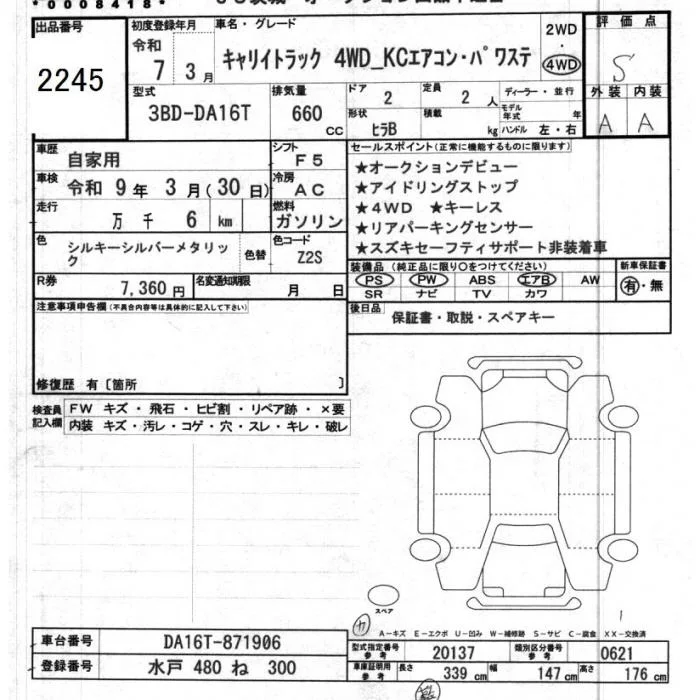 *0008418*
出品番号
2245
初度登録年月
令和
7 3月
車名・グレード
キャリイトラック 4WD_KCエアコン・パワステ
2WD
・
4WD
評価点
S
外装 内装
A A
型式
3BD-DA16T
排気量
660
cc
ドア
2
定員
2 人
形状
ヒラB
積載
kg
ディーラー・並行
モデル年式 年
ハンドル 左・右
車歴
自家用
シフト
F5
車検
令和 9年 3月(30日)
冷房
AC
走行
万 千 6 km
燃料
ガソリン
色
シルキーシルバーメタリック
色替
色コード
Z2S
R券
7,360円
名変通知期限
月 日
セールスポイント(正常に機能するものに限ります)
★オークションデビュー
★アイドリングストップ
★4WD ★キーレス
★リアパーキングセンサー
★スズキセーフティサポート非装着車
装備品(純正品に限り○をつけてください)
PS PW ABS エアB AW
SR ナビ TV カワ
新車保証書
有・無
後日品
保証書・取説・スペアキー
注意事項申告欄(不具合内容等は具体的に記入して下さい)
修復歴 有〔箇所 〕
検査員記入欄
FW キズ・飛石・ヒビ割・リペア跡・×要
内装 キズ・汚レ・コゲ・穴・スレ・キレ・破レ
スペア
A-キズ E-エクボ U-凹み W-補修跡 S-サビ C-腐食 XX-交換済
車台番号
DA16T-871906
登録番号
水戸 480 ね 300
型式指定番号
参考
20137
類別区分番号
参考
0621
車庫証明用
参考
長さ
339 cm
幅
147 cm
高さ
176 cm